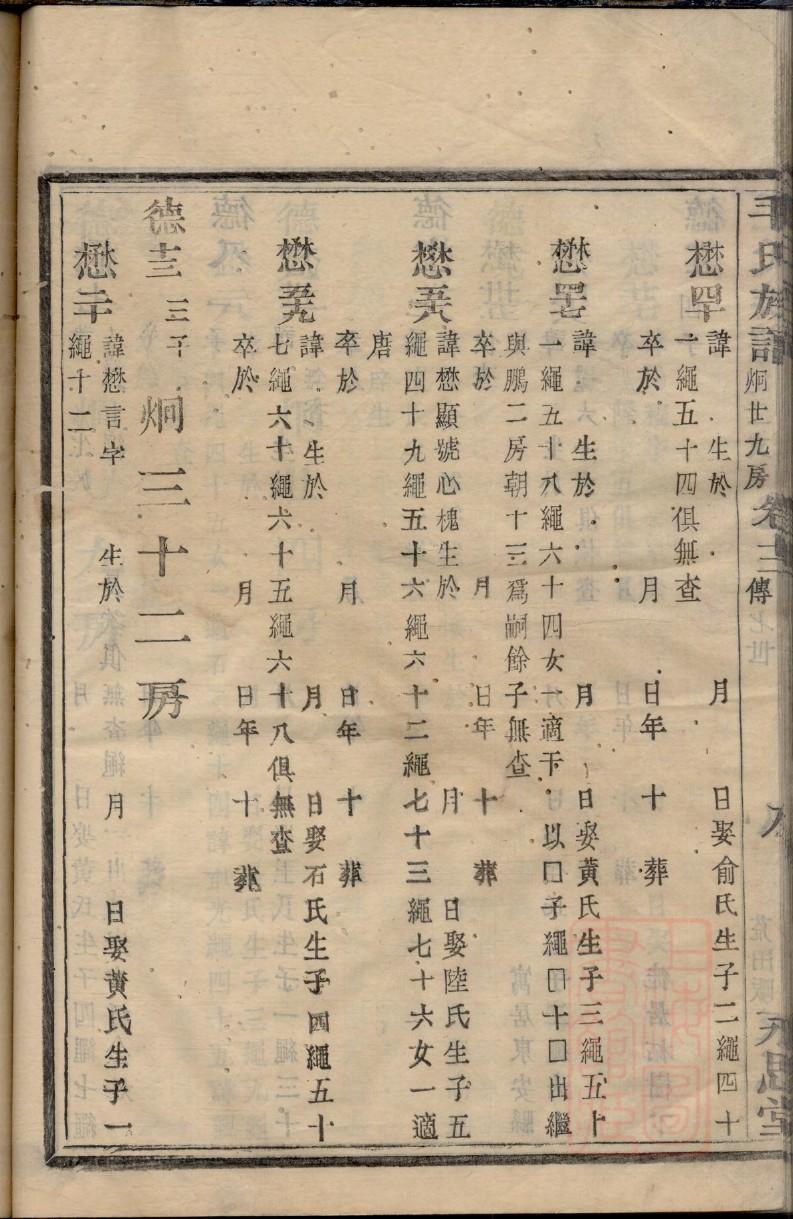 氏族譜 炯世九房 卷 傳
懋罕 諱 生於 月 日娶俞氏生子二繩四十
一繩五十四俱無查
卒於 月 日年 十 葬
懋 諱 生於 月 日娶黃氏生子三繩五十
一繩五十八繩六十四女一適于 以囗子繩囗十囗出繼
與鵬二房朝十三爲嗣餘子無查
卒於 月 日年 十 葬
懋 諱懋顯號心槐生於 月 日娶陸氏生子五
繩四十九繩五十六繩六十二繩七十三繩七十六女一適
唐
卒於 月 日年 十 葬
懋 諱 生於 月 日娶石氏生子四繩五十
七繩六十繩六十五繩六十八俱無查
卒於 月 日年 十 葬
德 三子 炯三十二房
懋 諱懋言字 生於 月 日娶黃氏生子一
繩十二